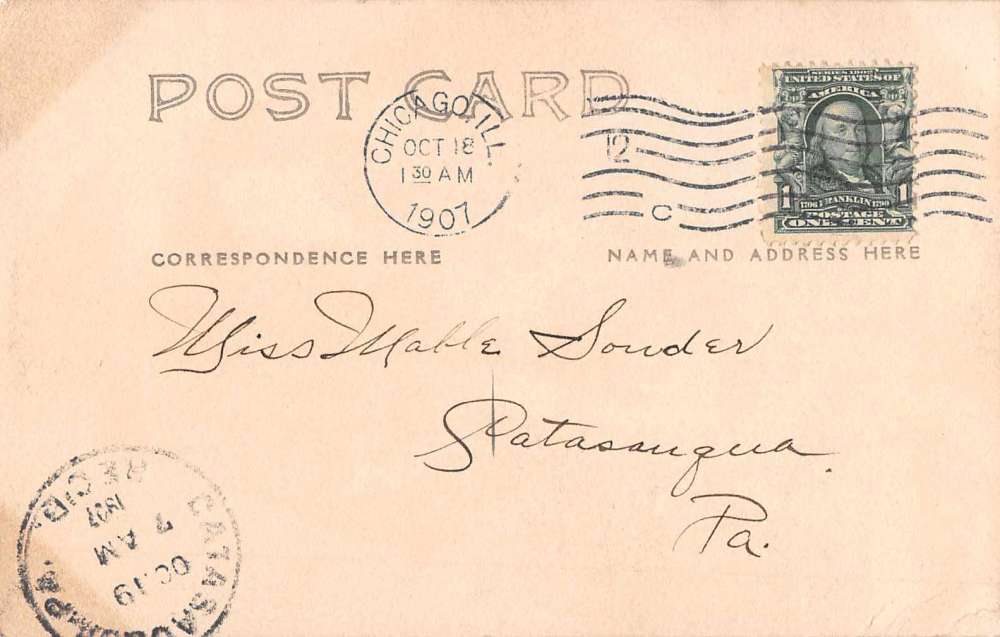 POST CARD
CHICAGO, ILL.
OCT 18
1 30 AM
1907
12
C
SERIES 1902
UNITED STATES OF
AMERICA
1 1
1706 FRANKLIN 1790
POSTAGE
ONE CENT
CORRESPONDENCE HERE
NAME AND ADDRESS HERE
Miss Mable Souder
Catasauqua
Pa.
REC'D.
1907
7 AM
OC 19
PA.